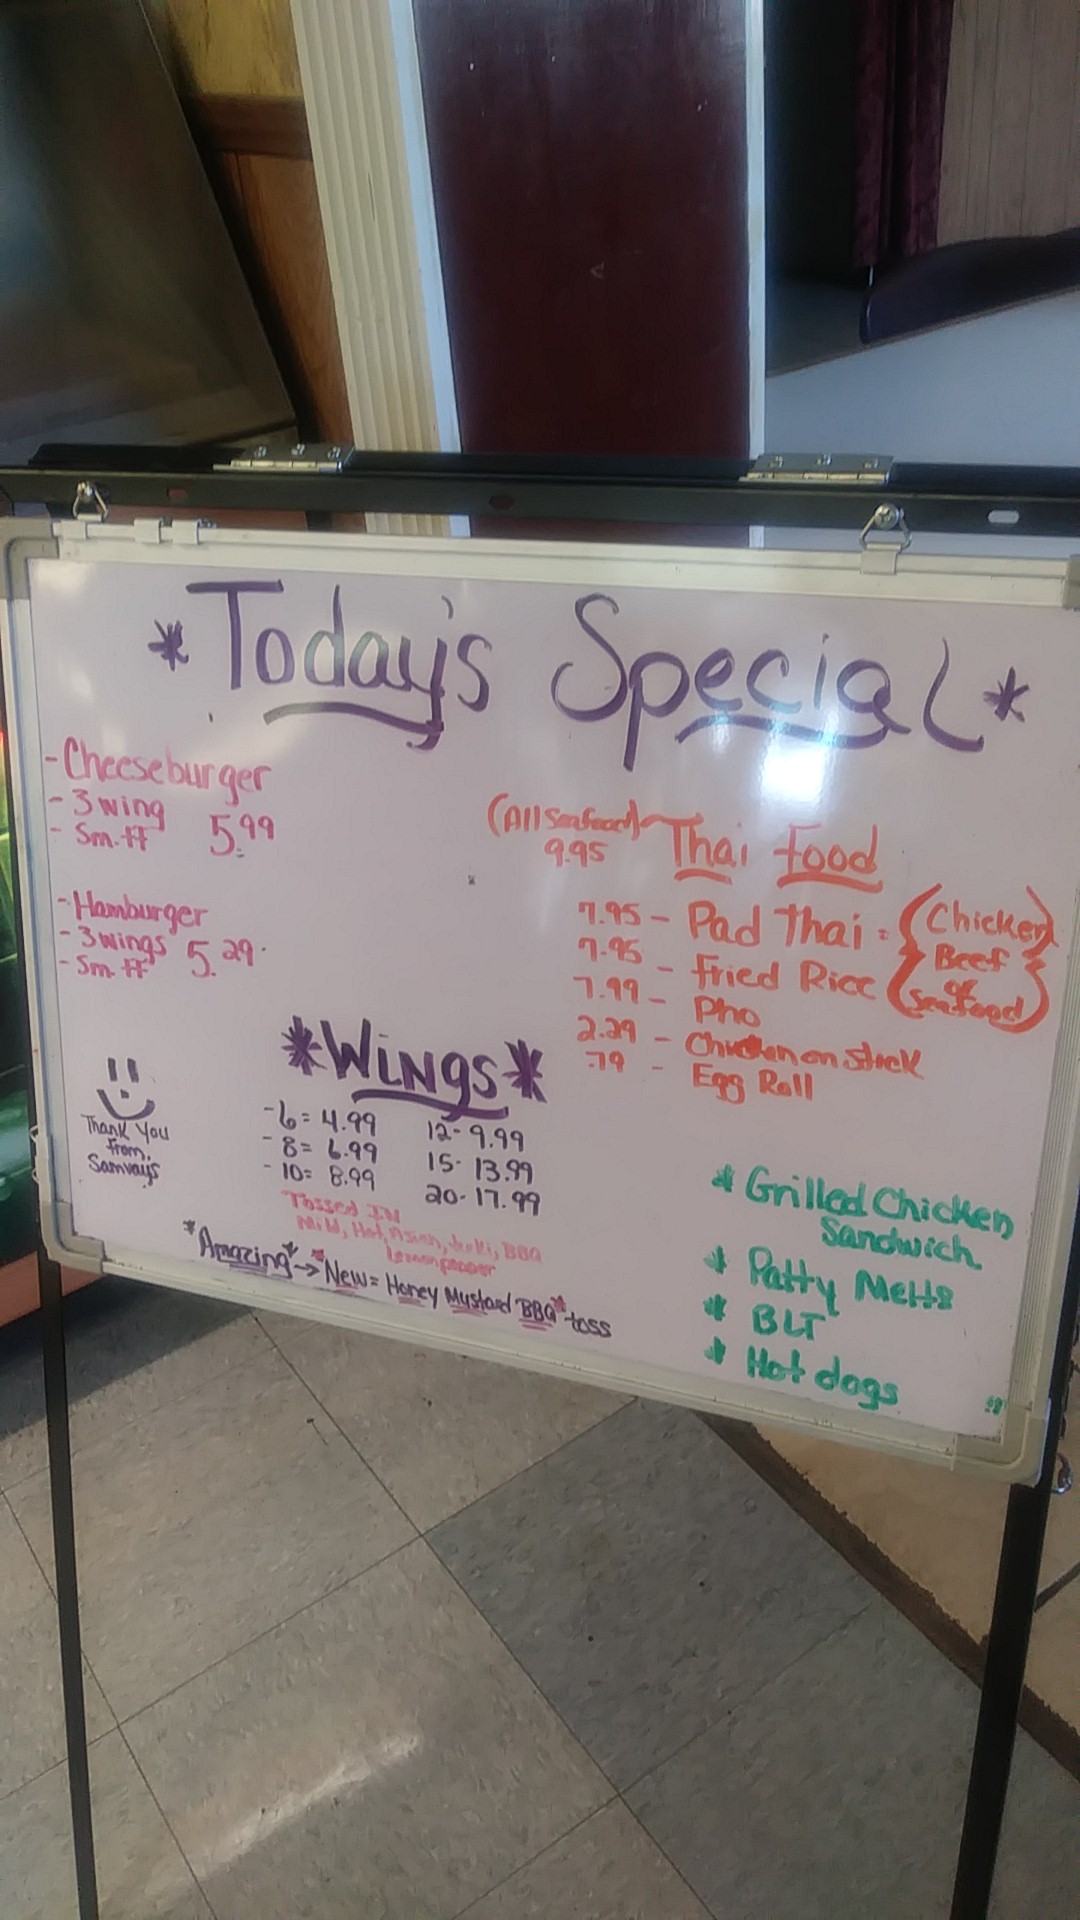 *Today's Special*
- Cheeseburger
- 3 wing
- Sm. ff 5.99
- Hamburger
- 3 wings 5.29
- Sm. ff
(All Seafood) Thai Food
9.95
7.95 - Pad Thai = (Chicken)
7.95 - Fried Rice Beef
or
Seafood
7.99 - Pho
2.29 - Chicken on Stick
.79 - Egg Roll
*Wings*
- 6 = 4.99 12 - 9.99
- 8 = 6.99 15 - 13.99
- 10 = 8.99 20 - 17.99
Tossed IN
Mild, Hot, Asian, BBQ
Lemon pepper
*Amazing* → *New = Honey Mustard BBQ* toss
Thank You
From,
* Grilled Chicken
Sandwich
* Patty Melts
* BLT
* Hot dogs